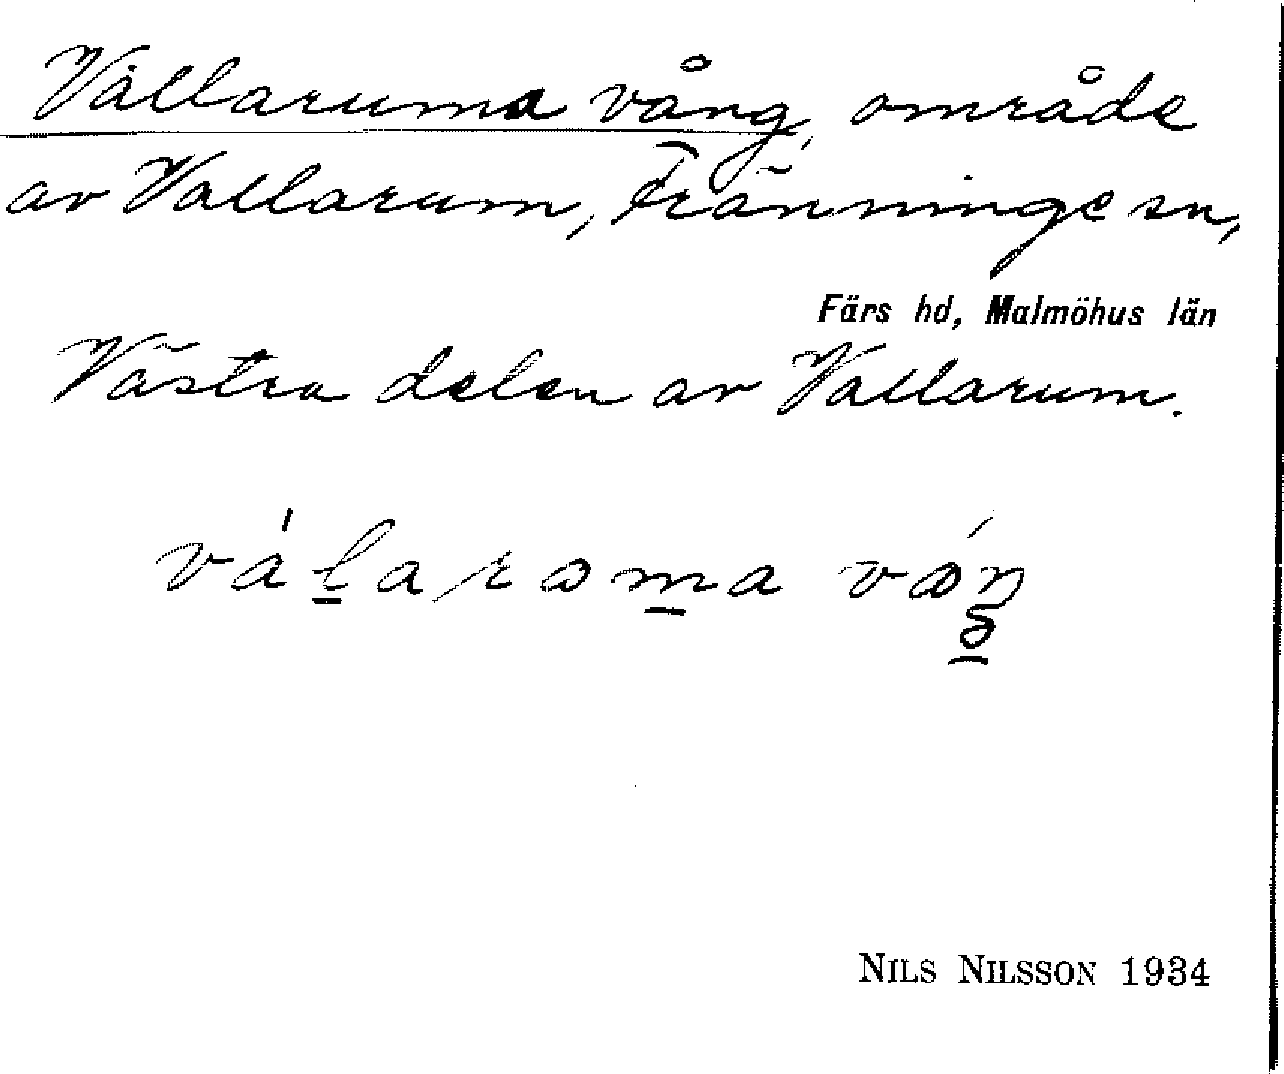 Vallaruma vång, område
av Vallarum, Fränninge sn,
Färs hd, Malmöhus län
Västra delen av Vallarum.
NILS NILSSON 1934